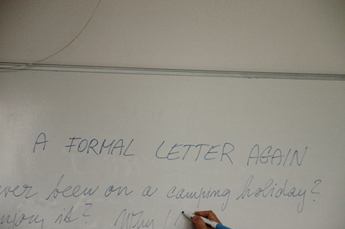 A FORMAL LETTER AGAIN
ver been on a camping holiday?
njoy it? Why